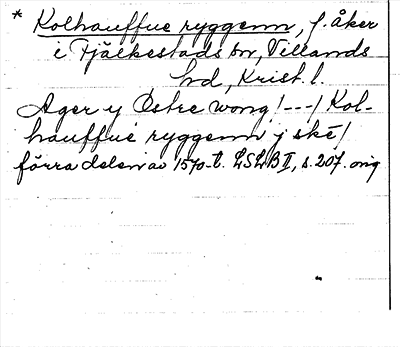 * Kolhauffue ryggenn, f. åker
i Fjälkestads sn, Villands
hd, Krist. l.
Ager y Østre wong /---/ Kol-
hauffue ryggenn j ske/
förra delen av 1570-t. LSLB II, s. 207. orig